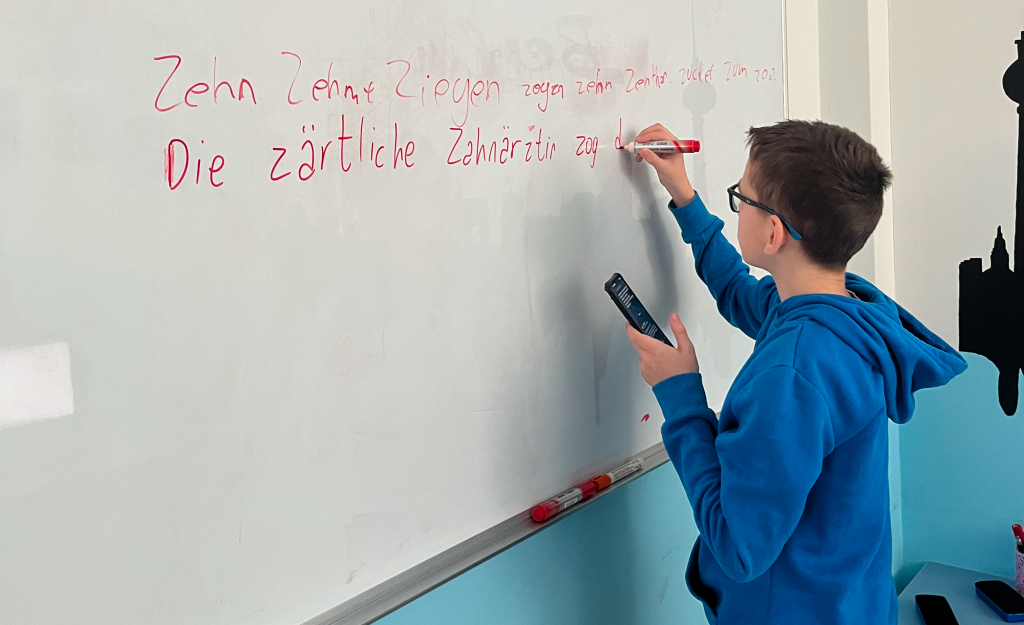 Zehn Zehme Ziegen zogen zehn Zentner Zucker zum Zoo.
Die zärtliche Zahnärztin zog d